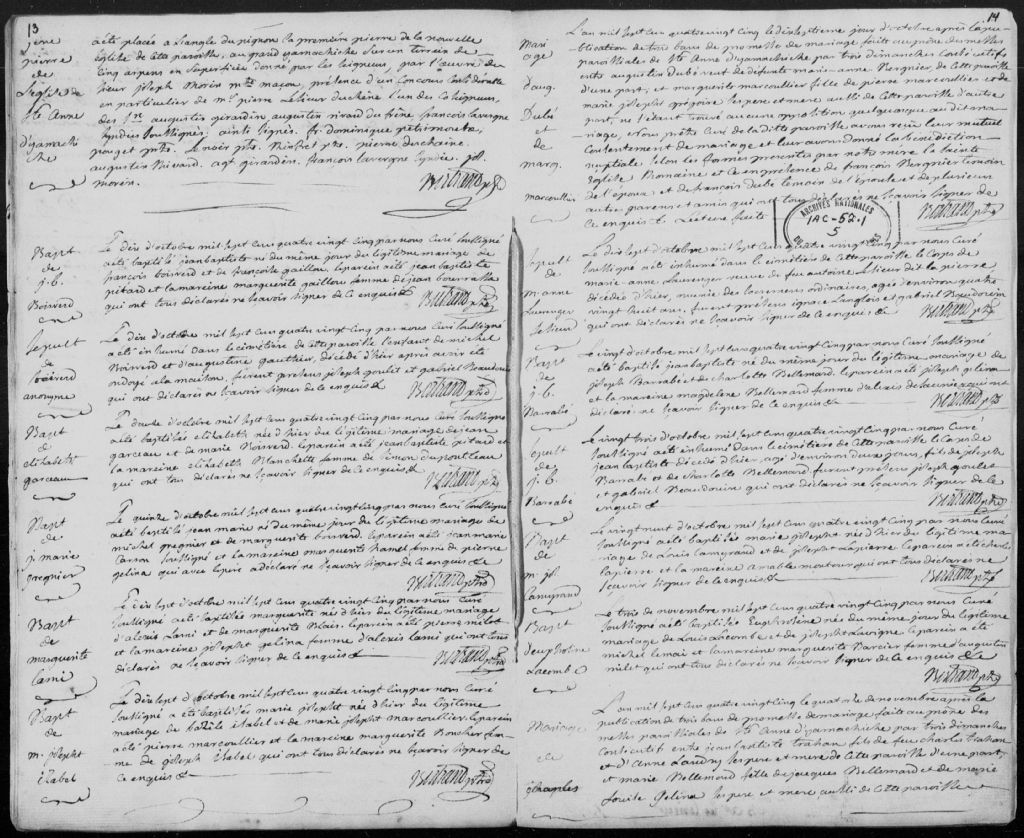 13
1ere
pierre
de
L'eglise de
Ste Anne
D'yamachi
che
a été placée a L'angle du pignon la première pierre de la nouvelle
Eglise de cette paroisse, au grand yamachiche sur un terrein de
cinq arpens en superficie donné par les seigneurs, par l'œuvre de
sieur joseph Morin mtre maçon, présence d'un Concours
en particulier de mr. pierre Lesieur duchêne l'un des Coseigneurs,
des Srs augustin girardin augustin rivard du frêne françois lavergne
syndics soussignés, ainsi signés. fr. Dominique petitrmontr,
pouget ptre. Lenoir ptre. ptre. pierre duchaine.
augustin Rivard. agt girardin. françois lavergne syndic. jos.
morin.
Bertrand ptre
Bapt
de
j. b.
Boisverd
Le dix d'octobre mil sept cens quatre vingt cinq par nous Curé soussigné
a été baptisé jean baptiste né du même jour du légitime mariage de
françois boisverd et de françoise gaillou. le parein a été jean baptiste
pitard et la mareine marguerite gaillou femme de jean
qui ont tous déclarés ne sçavoir signer de ce enquis &
Bertrand ptre
sepult
de
boisverd
anonyme
Le dix d'octobre mil sept cens quatre vingt cinq par nous Curé soussigné
a été inhumé dans le cimetière de cette paroisse l'enfant de michel
Boisverd et d'augustine gauthier, décédé d'hier après avoir été
ondoyé a la maison, furent présens joseph goulet et gabriel Beaudouin
qui ont déclarés ne sçavoir signer de ce enquis &
Bertrand ptre
Bapt
d
elizabeth
garceau
Le douze d'octobre mil sept cens quatre vingt cinq par nous Curé soussigné
a été baptisée elizabeth née d'hier du légitime mariage de jean
garceau et de marie Boisverd. le parein a été jean baptiste pitard et
la mareine elizabeth Blanchette femme de Simon dupont Leau
qui ont tous déclarés ne sçavoir signer de ce enquis &
Bertrand ptre
Bapt
de
j. marie
gregnier
Le quinze d'octobre mil sept cens quatre vingt cinq par nous Curé soussigné
a été baptisé jean marie né du même jour du légitime mariage de
michel gregnier et de marguerite boisverd. le parein a été jean marie
Carron soussigné et la mareine marguerite hamel femme de pierre
gelina qui avec le pere a déclaré ne sçavoir signer de ce enquis &
Bertrand ptre
Bapt
de
marguerite
Lami
Le dix sept d'octobre mil sept cens quatre vingt cinq par nous Curé
soussigné a été baptisée marguerite née d'hier du légitime mariage
d'alexis Lami et de marguerite Blais. le parein a été pierre milot
et la mareine joseph gelina femme d'alexis Lami qui ont tous
déclarés ne sçavoir signer de ce enquis &
Bertrand ptre
Bapt
de
m. josepht
isabel
Le dix sept d'octobre mil sept cens quatre vingt cinq par nous Curé
soussigné a été baptisée marie josepht née d'hier du légitime
mariage de bazile isabel et de marie josepht marcoullier. le parein
a été pierre marcoullier et la mareine marguerite Boucher fem-
me de joseph isabel qui ont tous déclarés ne sçavoir signer de
ce enquis &
Bertrand ptre
14
Mari
age
d'aug.
Dubé
et
de
marg.
marcoullier
L'an mil sept cens quatre vingt cinq le dix septieme jour d'octobre après la pu-
blication de trois bans de promesse de mariage faite au prône des messes
paroissiales de Ste Anne d'yamachiche par trois dimanches consécutifs
entre augustin dubé veuf de défunte marie-anne Bergnier, de cette paroisse
d'une part; et marguerite marcoullier fille de pierre marcoullier et de
marie josepht grégoire ses pere et mere aussi de cette paroisse d'autre
part, ne s'étant trouvé aucune opposition quelquonque au dit ma-
riage, Nous prêtre Curé de la ditte paroisse avons reçu leur mutuel
Consentement de mariage et leur avons Donné la bénédiction
nuptiale selon les formes prescrites par notre mere la Sainte
Eglise Romaine et ce en présence de françois Bergnier temoin
de l'épouse et de françois Dubé temoin de l'épouse et de plusieur
autre parens et amis qui ont tous déclarés ne sçavoir signer de
ce enquis &. Lecture faite
Bertrand ptre
ARCHIVES NATIONALES
1AC-52.1
5
sepult
de
m. anne
Laurenger
Lesieur
Le dix sept d'octobre mil sept cens quatre vingt cinq par nous Curé
soussigné a été inhumé dans le cimetière de cette paroisse le corps de
marie-anne Laurenger veuve de feu antoine Lesieur dit la pierre
décédée d'hier, munie des sacremens ordinaires, agée d'environ quatre
vingt huit ans, furent présens ignace Langlois et gabriel Beaudouin
qui ont déclarés ne sçavoir signer de ce enquis, &
Bertrand ptre
Bapt
de
j. b.
Barrabé
Le vingt d'octobre mil sept cens quatre vingt cinq par nous Curé soussigné
a été baptisé jean baptiste né du même jour du légitime mariage de
joseph Barrabé et de charlotte Bellemard. le parein a été joseph gelina
et la mareine magdelene Bellemard femme d'alexis qui ont
déclaré ne sçavoir signer de ce enquis &
Bertrand ptre
sepult
de
j. B.
Barrabé
Le vingt trois d'octobre mil sept cens quatre vingt cinq par nous Curé
soussigné a été inhumé dans le cimetière de cette paroisse le Corps de
jean baptiste décédé d'hier, agé d'environ deux jours, fils de joseph
Barrabé et de charlotte Bellemard. furent présens joseph goulet
et gabriel Beaudouin qui ont déclarés ne sçavoir signer de ce
enquis &
Bertrand ptre
Bapt
de
m. js.
Lamyrand
Le vingt neuf d'octobre mil sept cens quatre vingt cinq par nous Curé
soussigné a été baptisée marie josepht née d'hier du légitime ma-
riage de Louis Lamyrand et de josepht Lapierre le parein a été charles
lapierre et la mareine amable moutour qui ont tous déclarés ne
sçavoir signer de ce enquis &
Bertrand ptre
Bapt
d'euphosine
Lacombe
Le trois de novembre mil sept cens quatre vingt cinq par nous Curé
soussigné a été baptisée Euphrosine née du même jour du légitime
mariage de Louis Lacombe et de josepht Lavergne le parein a été
michel lemois et la mareine marguerite Narcier femme d'augustin
milet qui ont tous déclarés ne sçavoir signer de ce enquis &
Bertrand ptre
Mariage
de
L'an mil sept cens quatre vingt cinq le quatre de novembre après la
publication de trois bans de promesse de mariage faite au prône des
messes paroissiales de Ste Anne d'yamachiche par trois dimanches
Consécutif entre jean baptiste trahan fils de feu charles trahan
et d'Anne Landry ses pere et mere de cette paroisse d'une part,
et marie Bellemard fille de jacques Bellemard et de marie
Louise Gelina ses pere et mere, aussi de cette paroisse